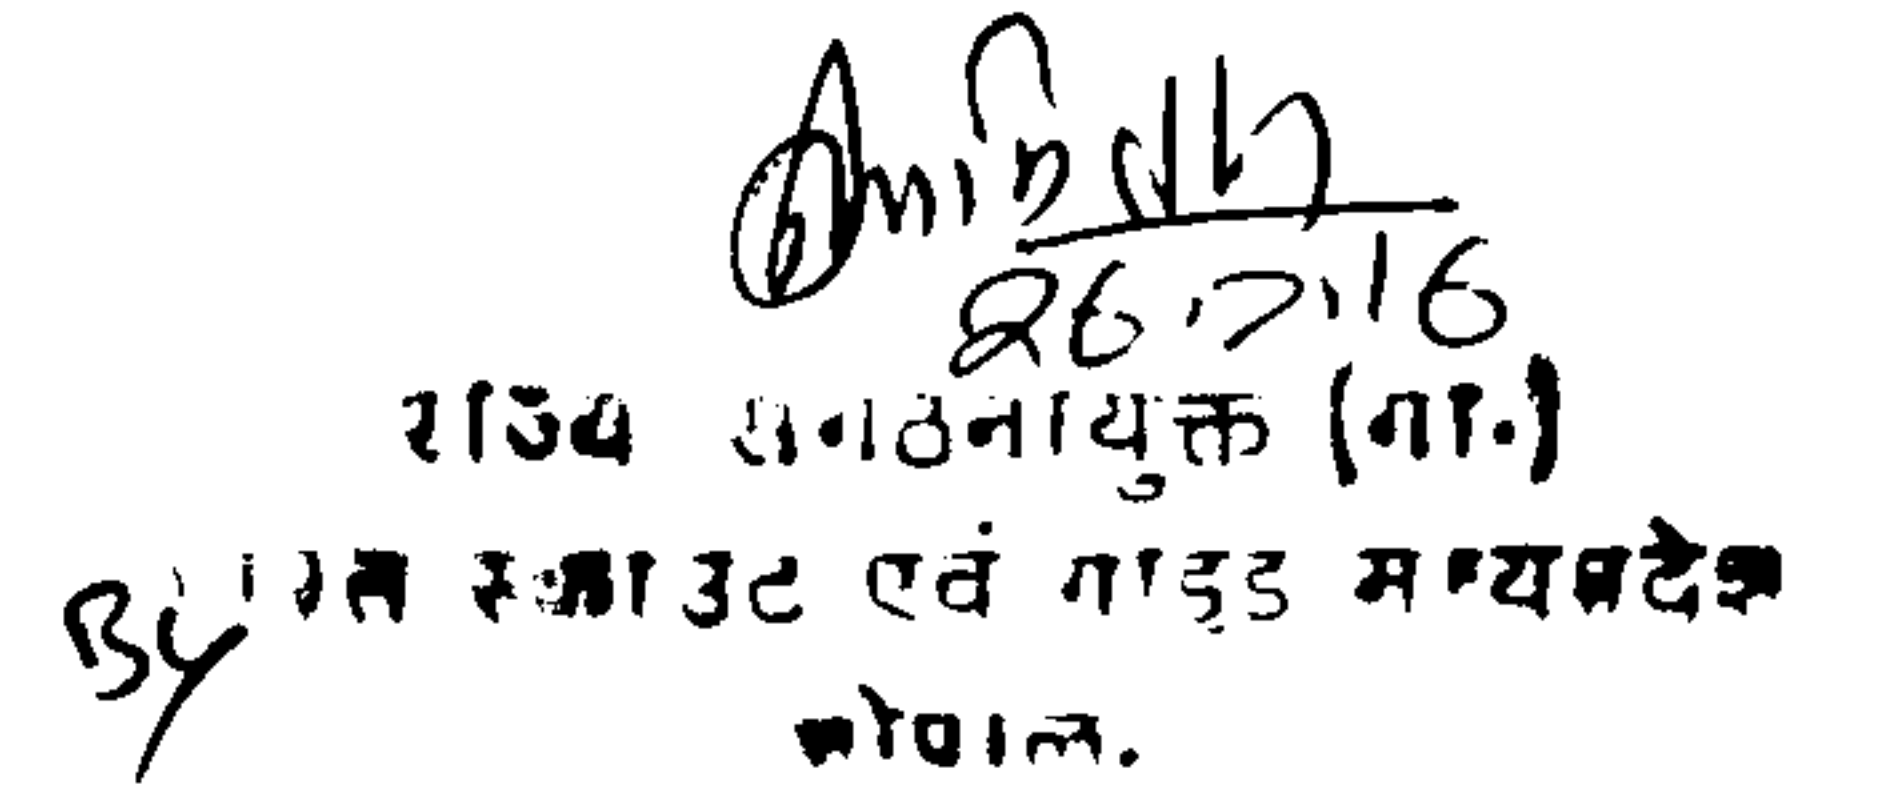 26.7.16
राज्य संगठनायुक्त (गा.)
भारत स्काउट एवं गाइड मध्यप्रदेश
By
भोपाल.